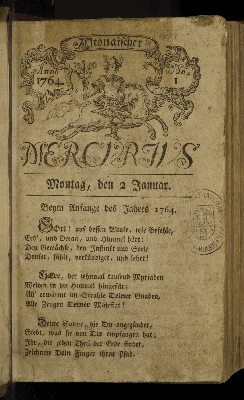 Altonaischer
Anno
1764.
No.
1
MERCURIUS
Montag, den 2 Januar.
Beym Anfange des Jahres 1764.
Gott! auf dessen Winke, wie Befehle,
Erd', und Ocean, und Himmel hört:
Den Geschöpfe, den Instinkt und Seele
Denket, fühlt, verkündiget, und lehrt!
Herr, der zehnmal tausend Myriaden
Welten in die Himmel hinausäet:
All' erwärmt im Strahle Deiner Gnaden,
Alle Zeugen Deiner Majestät!
Deine Sonne, die Du angezündet,
Strebt, was sie von Dir empfangen hat;
Ihr, die jeden Theil der Erde findet,
Zeichnete Dein Finger ihren Pfad.